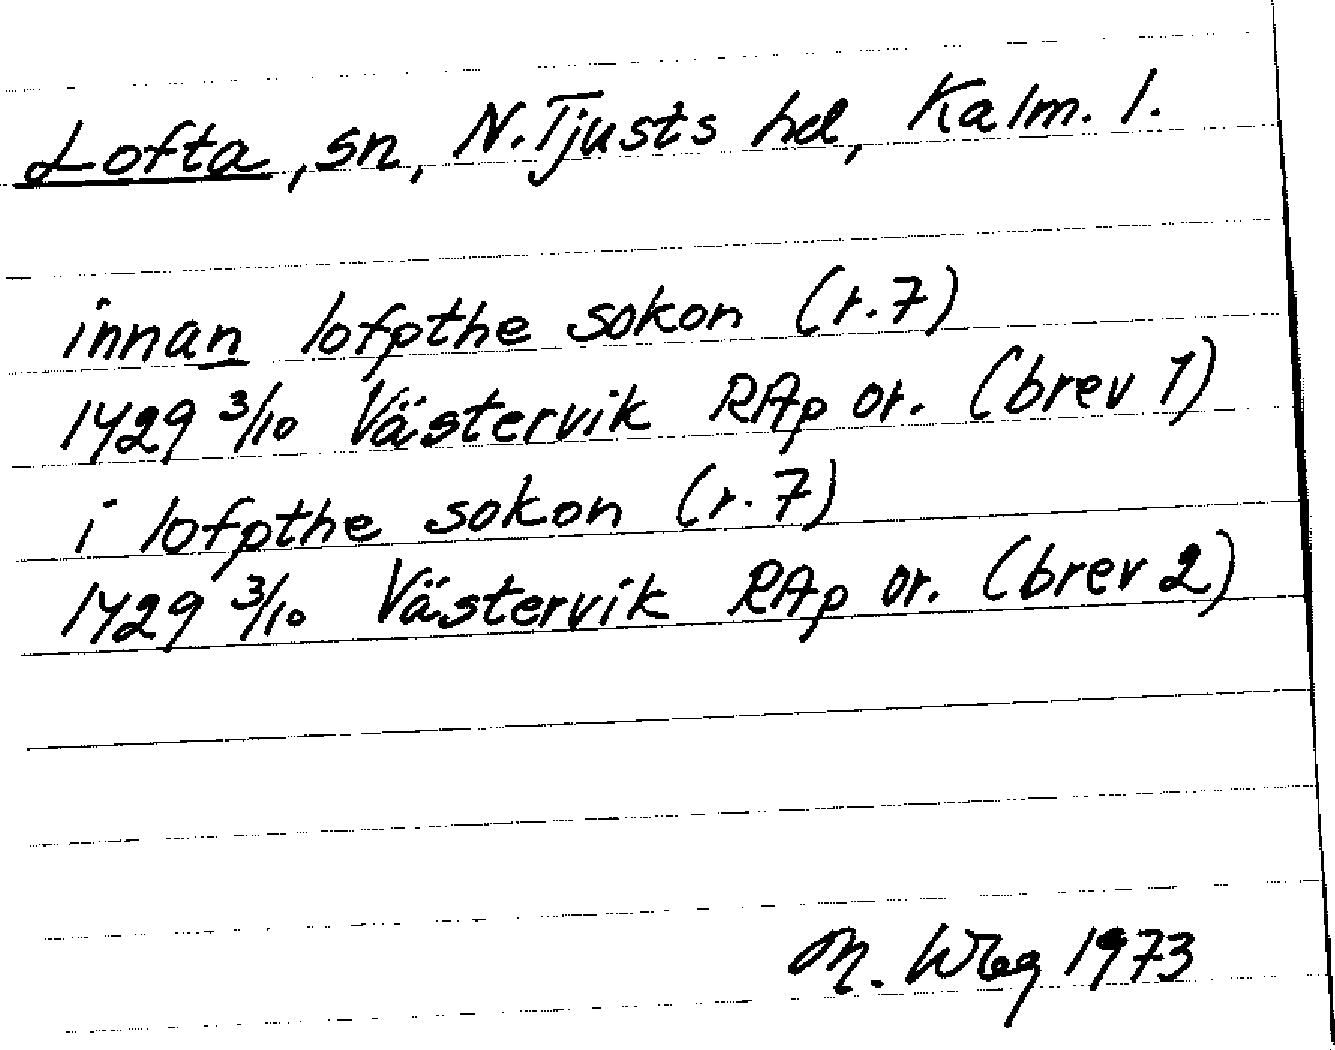 Lofta, sn, N. Tjusts hd, Kalm. l.
innan lofpthe sokon (r. 7)
1429 3/10 Västervik RAp or. (brev 1)
i lofpthe sokon (r. 7)
1429 3/10 Västervik RAp or. (brev 2)
M. 1973